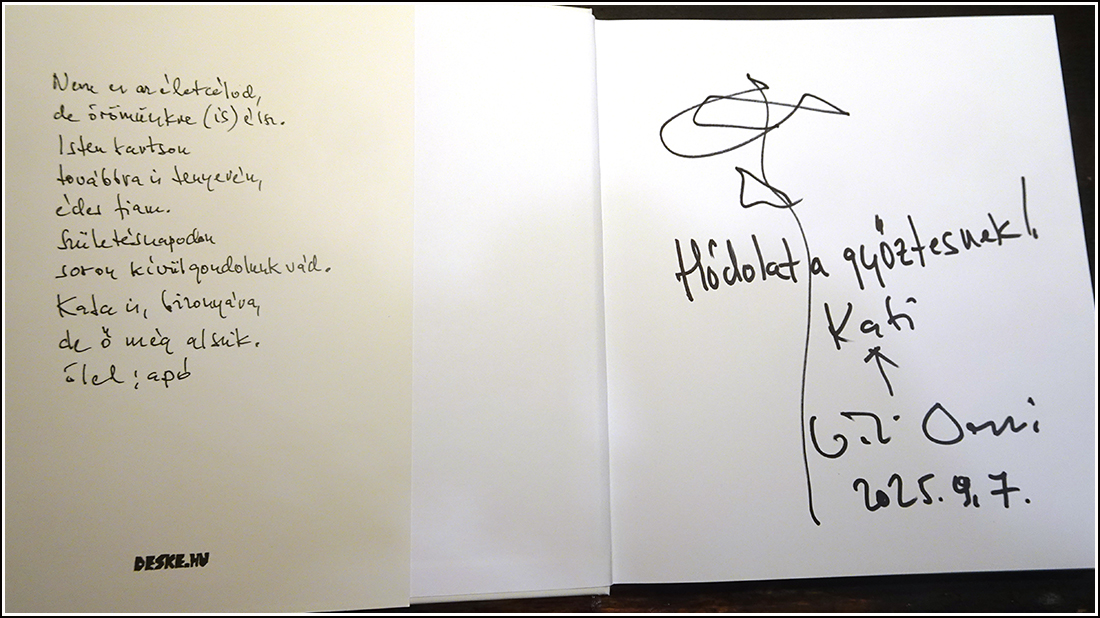 Nem ez az életcélod,
de örömünkre (is) élsz.
Isten tartson
továbbra is tenyerén,
édes fiam.
Születésnapodon
soron kívül gondolunk rád.
Kata is, bizonyára,
de ő még alszik.
ölel: apó
DESKE.HU
Hódolat a győztesnek!
Kati
2025. 9. 7.